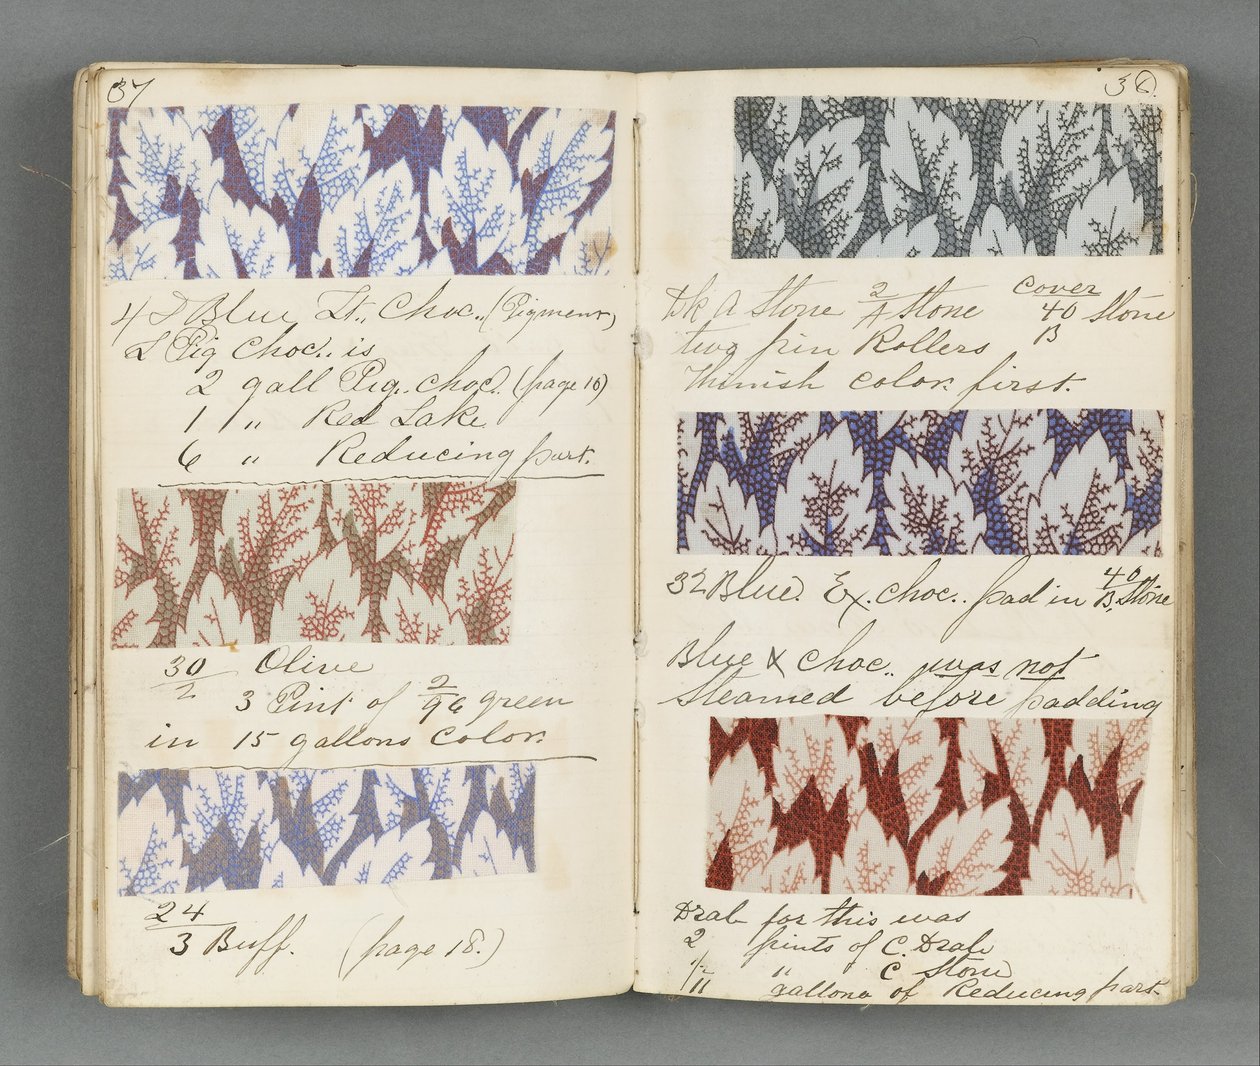 37
4 D Blue Lt. Choc. (Pigment)
L Pig Choc. is
2 gall Pig. choc. (page 16)
1 " Red Lake
6 " Reducing part.
30/2 Olive
3 Pint of 2/96 green
in 15 gallons Color.
24/3 Buff. (page 18.)
36.
Dk A Stone 2/A Stone Cover 40/B Stone
two pin Rollers
Thinish color first.
32 Blue. Ex. choc. pad in 40/B. Stone
Blue & choc. was not
steamed before padding
Drab for this was
2 pints of C. Drab
" C Stone
11 gallons of Reducing part.